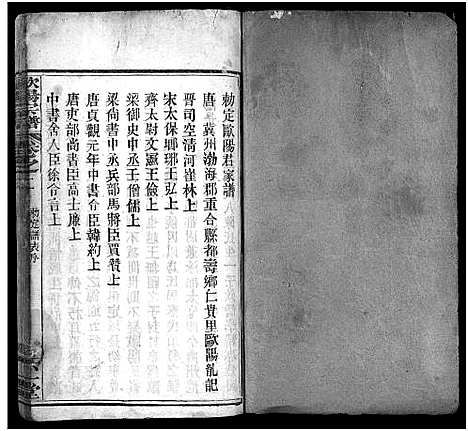 勅定歐陽君家譜
唐冀州渤海郡重合縣都壽鄉仁貴里歐陽乿記
晉司空清河崔林上
宋太保瑯琊王弘上
齊太尉文憲王儉上
梁御史中丞王僧孺上
梁尚書中丞兵部馬將臣賈贊上
唐貞觀元年中書介臣韓約上
唐吏部尚書臣高士廉上
中書舍人臣徐令言上